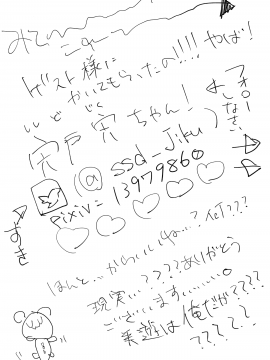 みて〜
ゲスト様に
かいてもらったの!!!! やば!
ししど じく
宍戸 宍ちゃん!
(@ssd_Jiku)
フォローしなさい
pixiv= 13979860
すき
ほんと…かわいいね…?何???
現実…????ありがとう
ございます………。
美遊は俺だが????
????